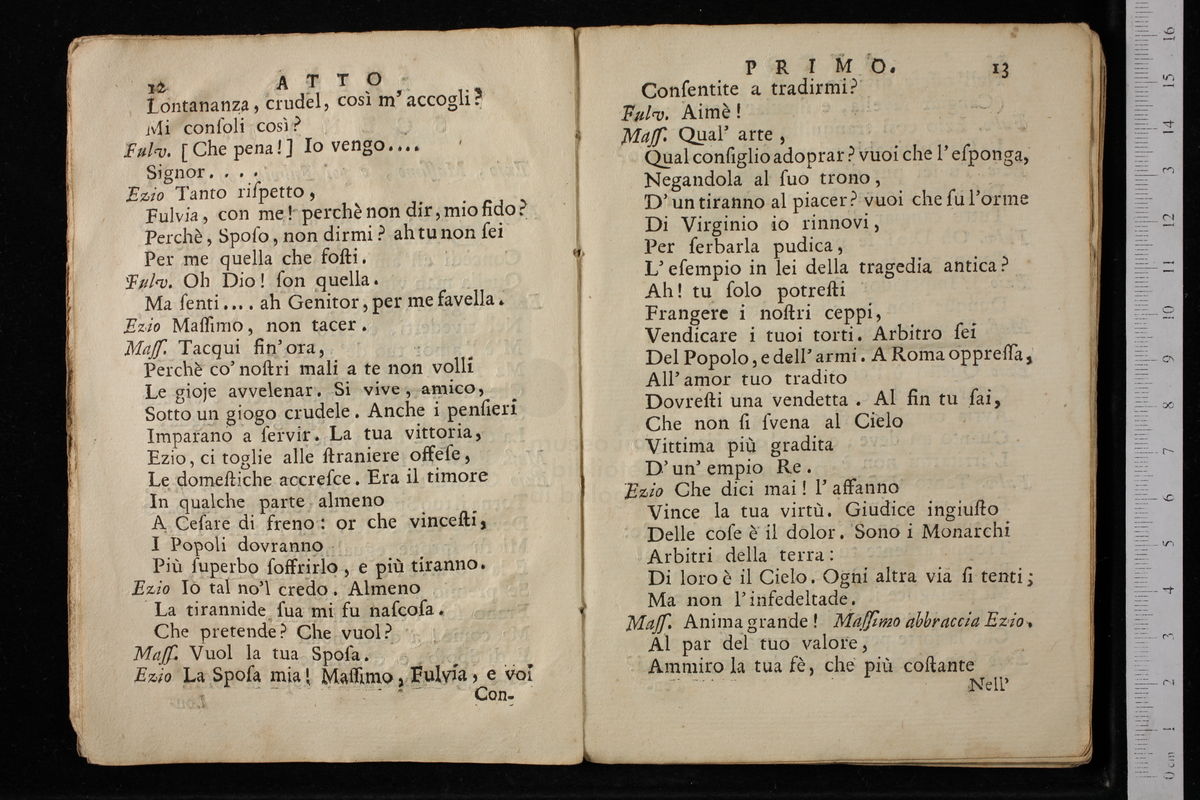 12 ATTO
Lontananza, crudel, così m' accogli?
Mi conſoli così?
Fulv. [Che pena!] Io vengo....
Signor....
Ezio Tanto riſpetto,
Fulvia, con me! perchè non dir, mio fido?
Perchè, Spoſo, non dirmi? ah tu non ſei
Per me quella che foſti.
Fulv. Oh Dio! ſon quella.
Ma ſenti.... ah Genitor, per me favella.
Ezio Maſſimo, non tacer.
Maſſ. Tacqui fin' ora,
Perchè co' noſtri mali a te non volli
Le gioje avvelenar. Si vive, amico,
Sotto un giogo crudele. Anche i penſieri
Imparano a ſervir. La tua vittoria,
Ezio, ci toglie alle ſtraniere offeſe,
Le domeſtiche accreſce. Era il timore
In qualche parte almeno
A Ceſare di freno: or che vinceſti,
I Popoli dovranno
Più ſuperbo ſoffrirlo, e più tiranno.
Ezio Io tal no'l credo. Almeno
La tirannide ſua mi fu naſcoſa.
Che pretende? Che vuol?
Maſſ. Vuol la tua Spoſa.
Ezio La Spoſa mia! Maſſimo, Fulvia, e voi
Con-
PRIMO. 13
Conſentite a tradirmi?
Fulv. Aimè!
Maſſ. Qual' arte,
Qual conſiglio adoprar? vuoi che l' eſponga,
Negandola al ſuo trono,
D' un tiranno al piacer? vuoi che ſu l'orme
Di Virginio io rinnovi,
Per ſerbarla pudica,
L' eſempio in lei della tragedia antica?
Ah! tu ſolo potreſti
Frangere i noſtri ceppi,
Vendicare i tuoi torti. Arbitro ſei
Del Popolo, e dell' armi. A Roma oppreſſa,
All' amor tuo tradito
Dovreſti una vendetta. Al fin tu ſai,
Che non ſi ſvena al Cielo
Vittima più gradita
D' un' empio Re.
Ezio Che dici mai! l' affanno
Vince la tua virtù. Giudice ingiuſto
Delle coſe è il dolor. Sono i Monarchi
Arbitri della terra:
Di loro è il Cielo. Ogni altra via ſi tenti;
Ma non l' infedeltade.
Maſſ. Anima grande! Maſſimo abbraccia Ezio.
Al par del tuo valore,
Ammiro la tua fè, che più coſtante
Nell'